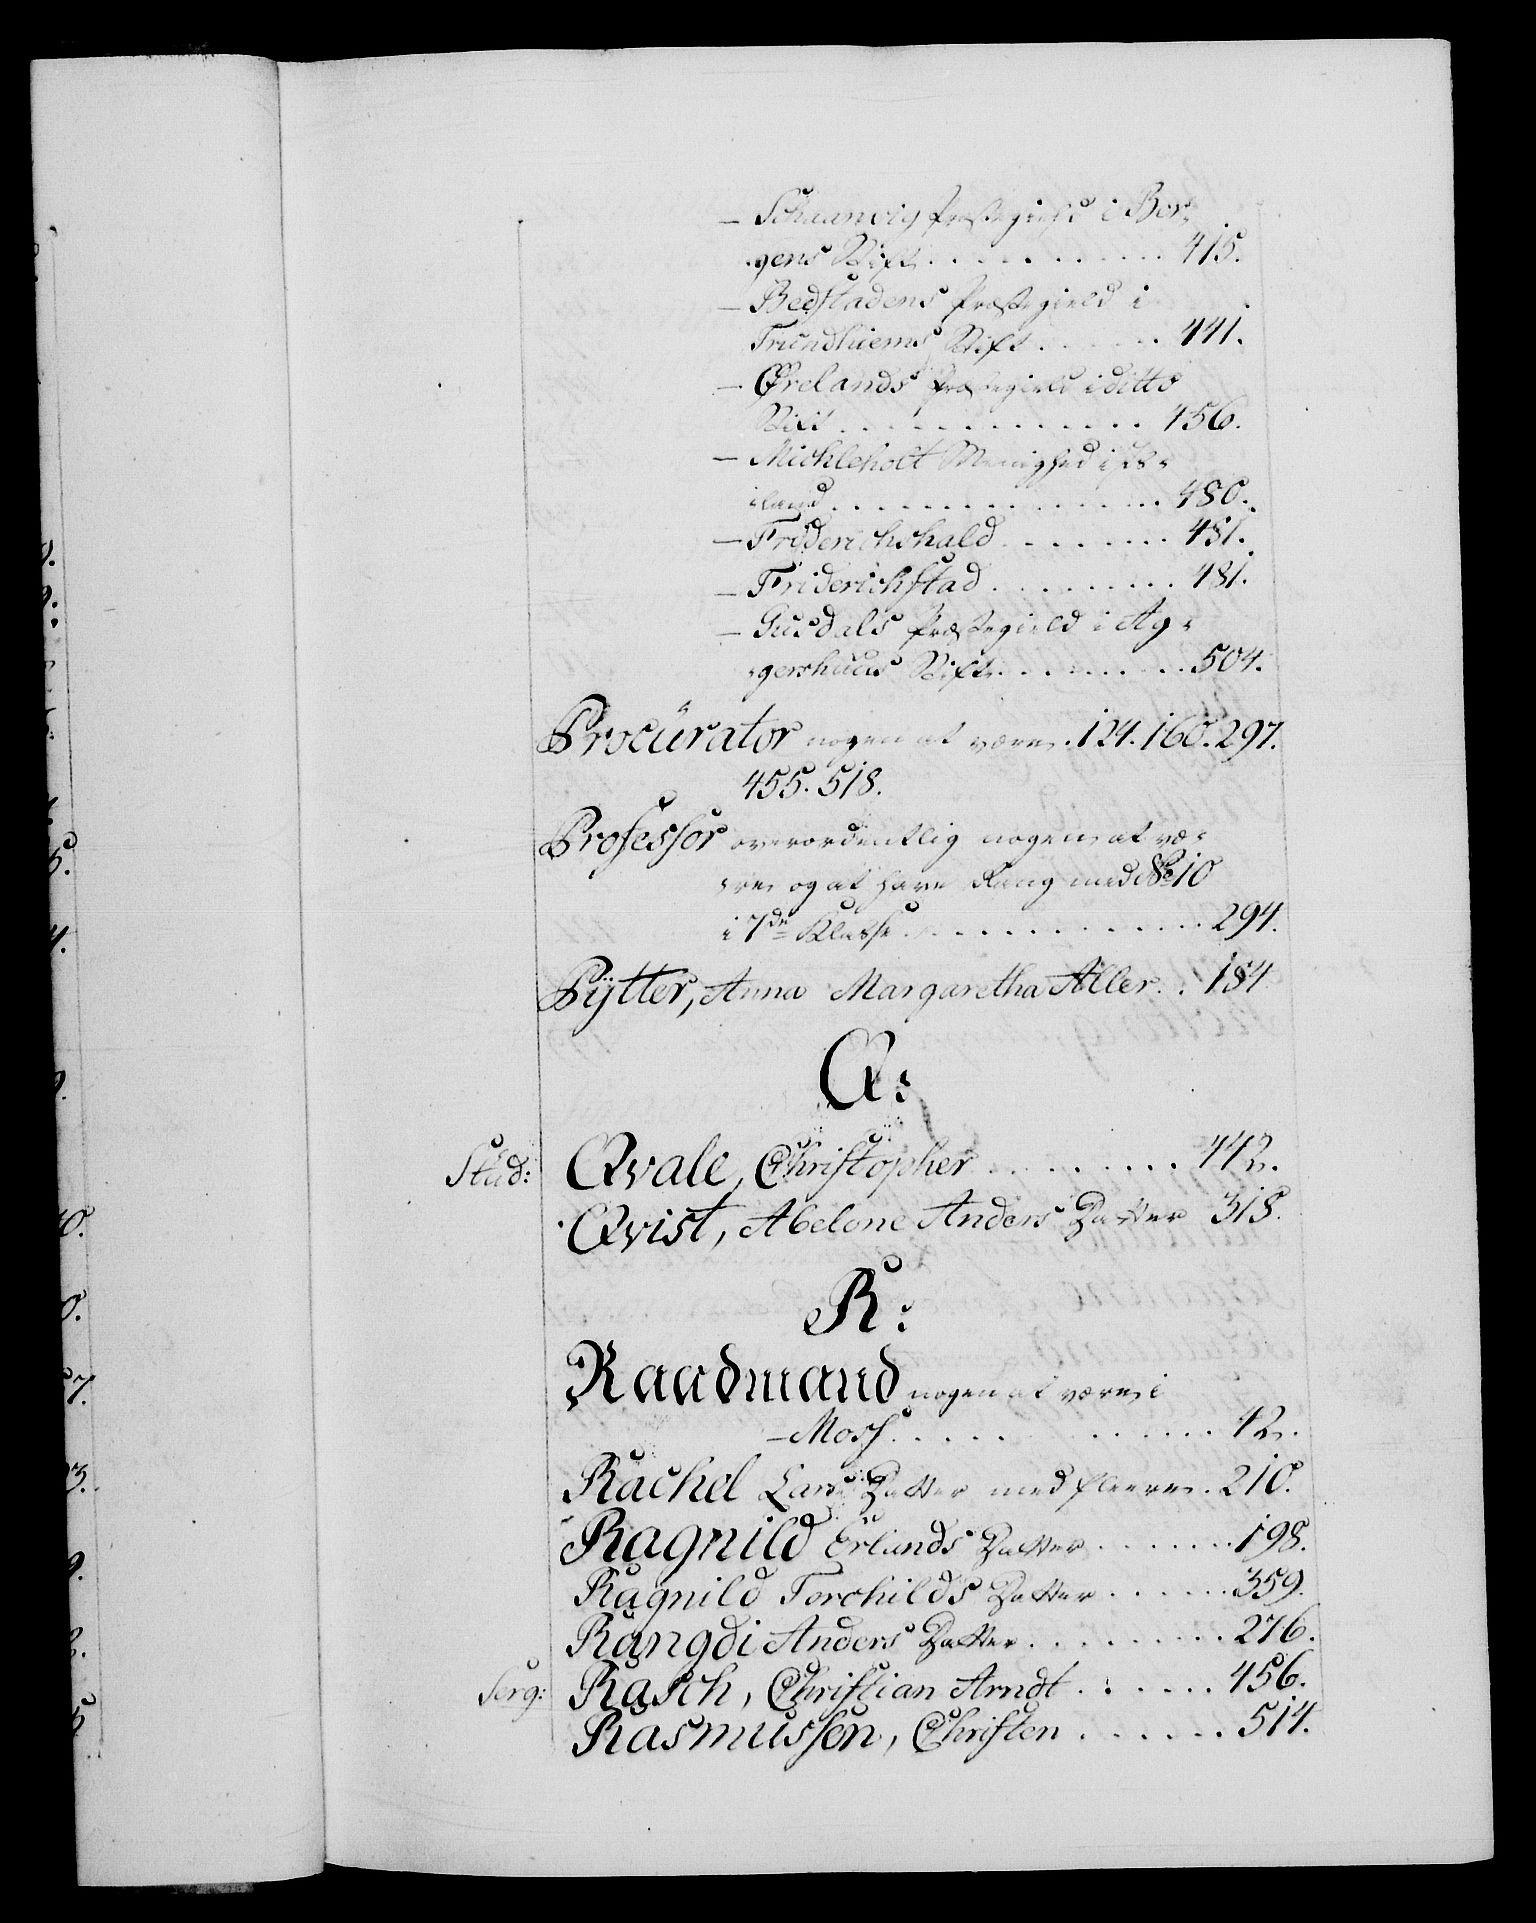 – Schaanvig Præstegield i Ber⸗
gens Stift . . . . . . . . . . . 415.
– Bedstadens Præstegield i
Trundhiems Stift . . . . . . 441.
– Ørelands Præstegield i ditto
Stift . . . . . . . . . . . . . 456.
– Michleholt Menighed i Is⸗
⸗land . . . . . . . . . . . . . . 480.
– Friderichshald . . . . . . . . 481.
– Friderichstad . . . . . . . . . 481.
– Gusdals Præstegield i Ag⸗
⸗gershuus Stift . . . . . . . . 504.
Procurator nogen at være . 124. 160. 297.
455. 518.
Professor overordentlig nogen at væ⸗
⸗re og at have Rang med No 10
i 7de Klasse . . . . . . . . . . . 294.
Pÿtter, Anna Margaretha Aller . . 184
Q:
Stud: Qvale, Christopher . . . . . . . . 442.
Qvist, Abelone Anders Datter 318.
R:
Raadmand nogen at være i
– Moss . . . . . . . . . . . 42.
Rachel Lars Datter med fleere . 210.
Ragnild Erlands Datter . . . . . . . 198.
Ragnild Torchilds Datter . . . . . . 359.
Rangdi Anders Datter . . . . . . . . . 276.
Serg: Rasch, Christian Arndt . . . . . . 456.
Rasmussen, Christen . . . . . . 514.